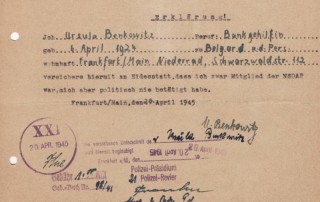 Erklärung!
Ich, Ursula Benkowitz Beruf: Bankgehilfin
geb. 6. April 1924 zu Belgard a.d. Pers.
wohnhaft: Frankfurt/Main Niederrad, Schwarzwaldstr. 112
versichere hiermit an Eidesstatt, dass ich zwar Mitglied der NSDAP
war, mich aber politisch nie betätigt habe.
Frankfurt/Main, den 20 April 1945
U. Benkowitz
XXI
20. APR. 1945
Ursula
Benkowitz
Polizei-Präsidium
21 Polizei-Revier
Gebühr 1.00